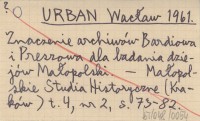 ?
URBAN Wacław 1961.
Znaczenie archiwów Bardiowa
i Preszowa dla badania dzie-
jów Małopolski. — Małopol-
skie Studia Historyczne (Kra-
ków) t. 4, nr 2, s. 73-82.